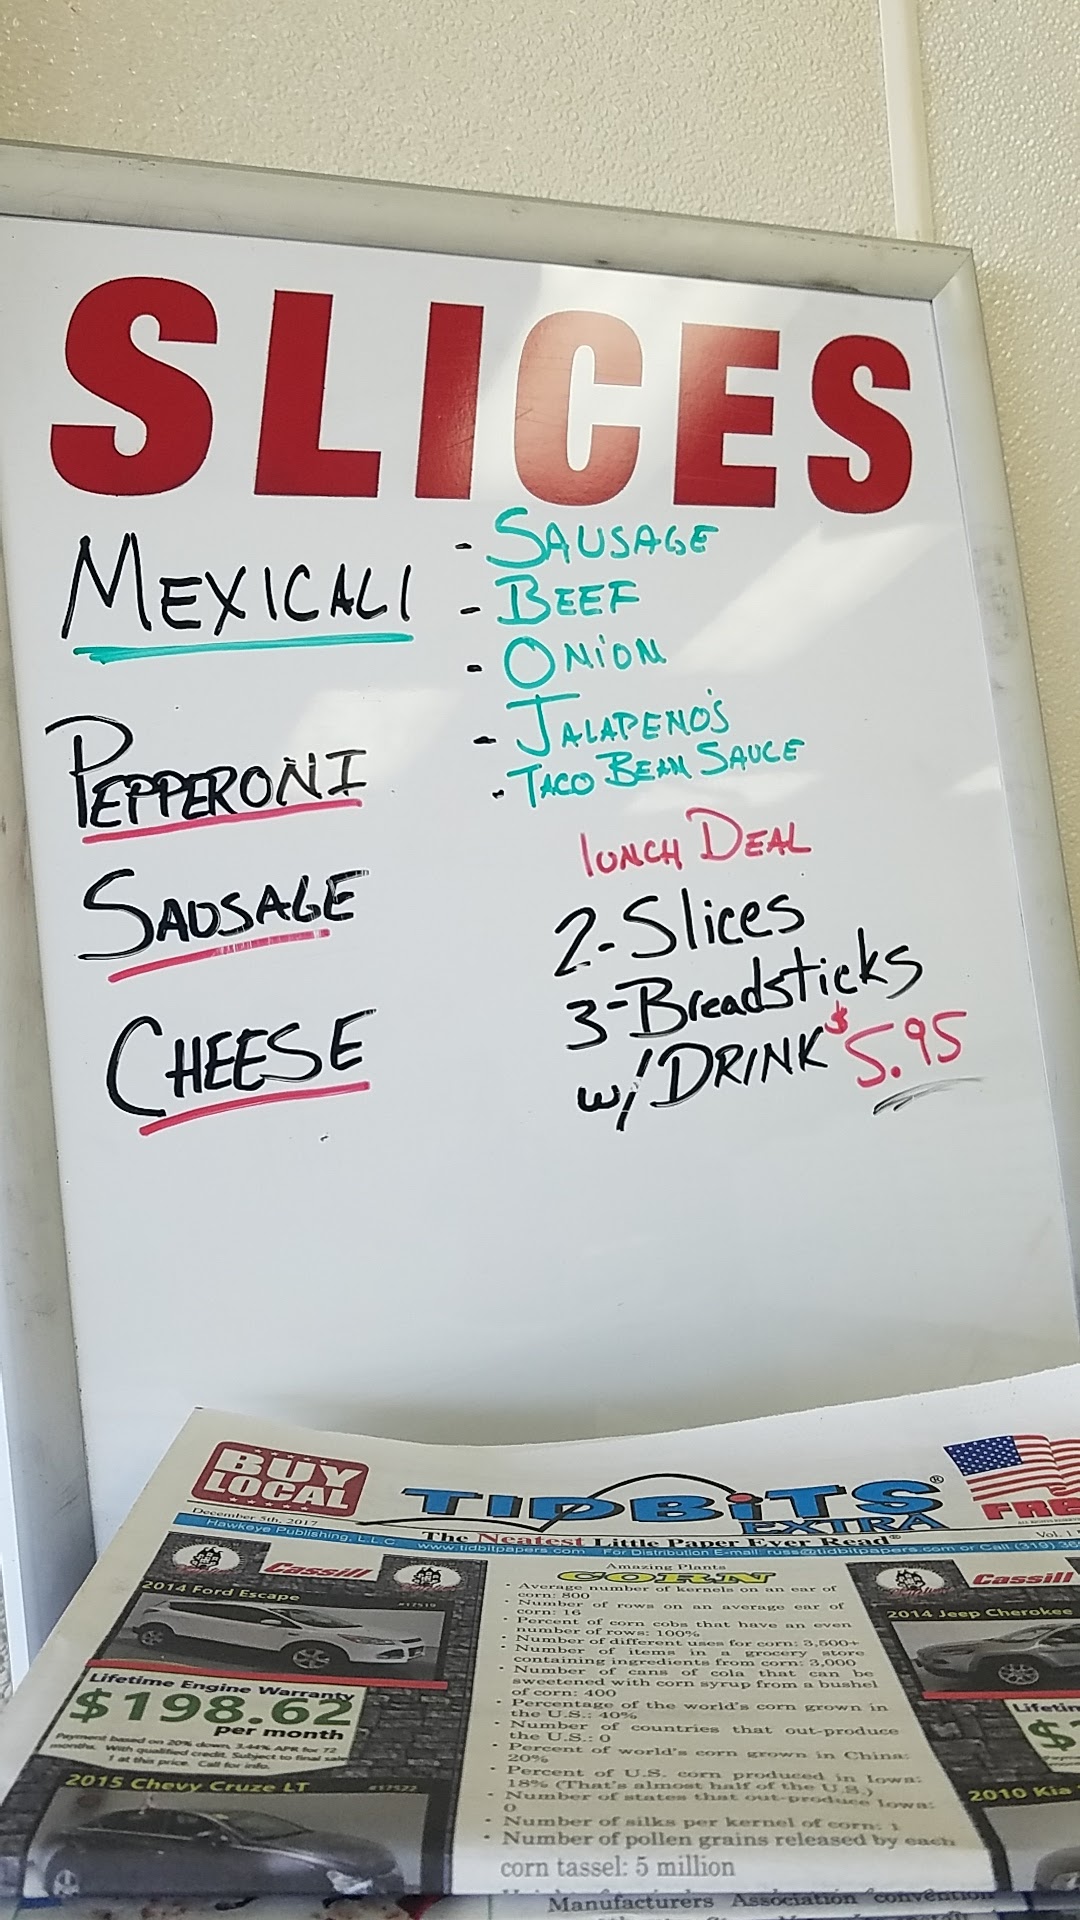 SLICES
MEXICALI
- SAUSAGE
- BEEF
- ONION
- JALAPENO'S
- TACO BEAN SAUCE
PEPPERONI
SAUSAGE
CHEESE
LUNCH DEAL
2-Slices
3-Breadsticks
w/DRINK $5.95
BUY LOCAL
TIDBITS®
EXTRA
December 5th, 2017
The Neatest Little Paper Ever Read®
Hawkeye Publishing, L.L.C. www.tidbitpapers.com For Distribution E-mail: russ@tidbitpapers.com or Call (319)
Vol. 1
Cassill
2014 Ford Escape
Lifetime Engine Warranty
$198.62
per month
Payment based on 20% down, 3.44% APR for 72
months. With qualified credit. Subject to final sale
at this price. Call for info.
2015 Chevy Cruze LT
Amazing Plants
CORN
• Average number of kernels on an ear of
corn: 800
• Number of rows on an average ear of
corn: 16
• Percent of corn cobs that have an even
number of rows: 100%
• Number of different uses for corn: 3,500+
• Number of items in a grocery store
containing ingredients from corn: 3,000
• Number of cans of cola that can be
sweetened with corn syrup from a bushel
of corn: 400
• Percentage of the world's corn grown in
the U.S.: 40%
• Number of countries that out-produce
the U.S.: 0
• Percent of world's corn grown in China:
20%
• Percent of U.S. corn produced in Iowa:
18% (That's almost half of the U.S.)
• Number of states that out-produce Iowa:
0
• Number of silks per kernel of corn: 1
• Number of pollen grains released by each
corn tassel: 5 million
Cassill
2014 Jeep Cherokee
2010 Kia
Manufacturers Association convention